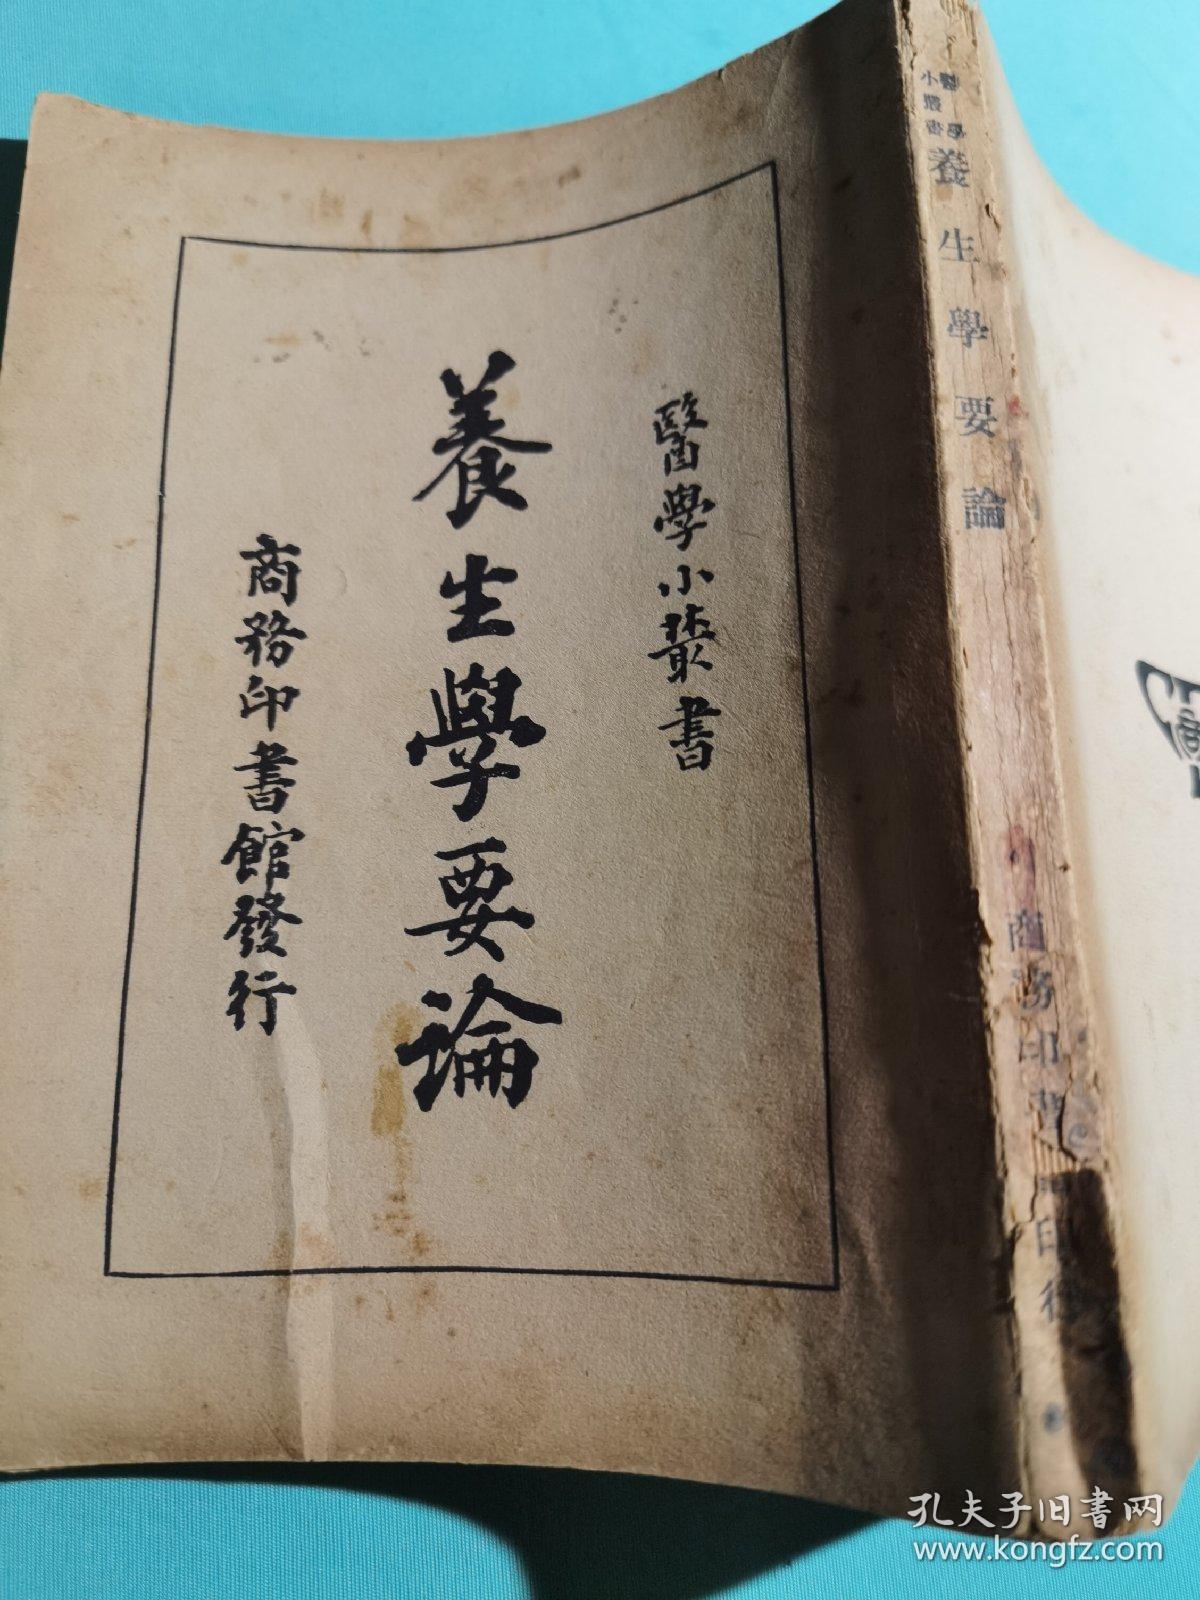 醫學小叢書
養生學要論
商務印書館發行
醫學
小叢書
養生學要論
商務印書
印行
孔夫子旧书网
www.kongfz.com